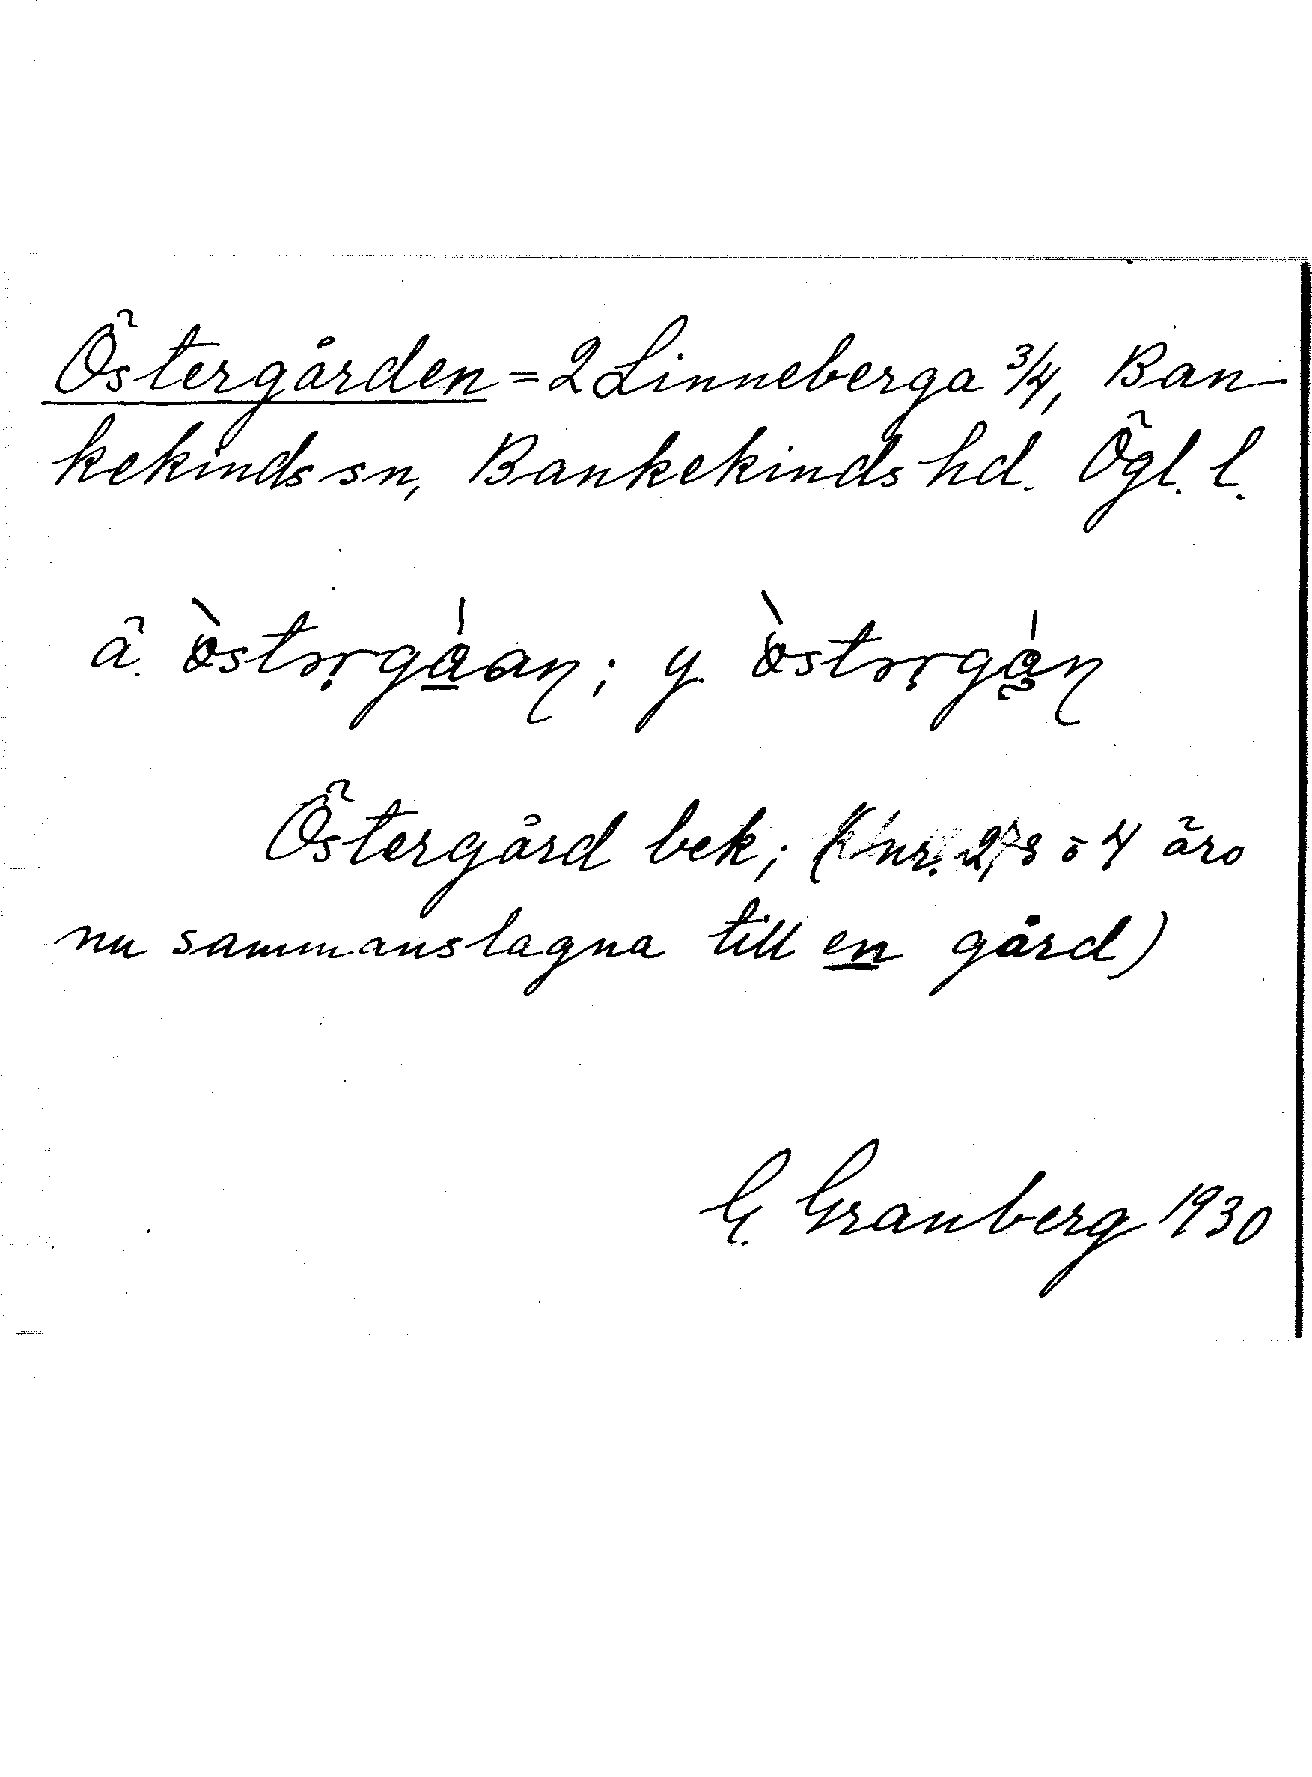 Östergården = 2 Linneberga 3/4, Ban-
kekinds sn, Bankekinds hd. Ögl. l.
ä. ; y
Östergård bek; (nr. 2, 3 o 4 äro
nu sammanslagna till en gård)
G. Granberg 1930